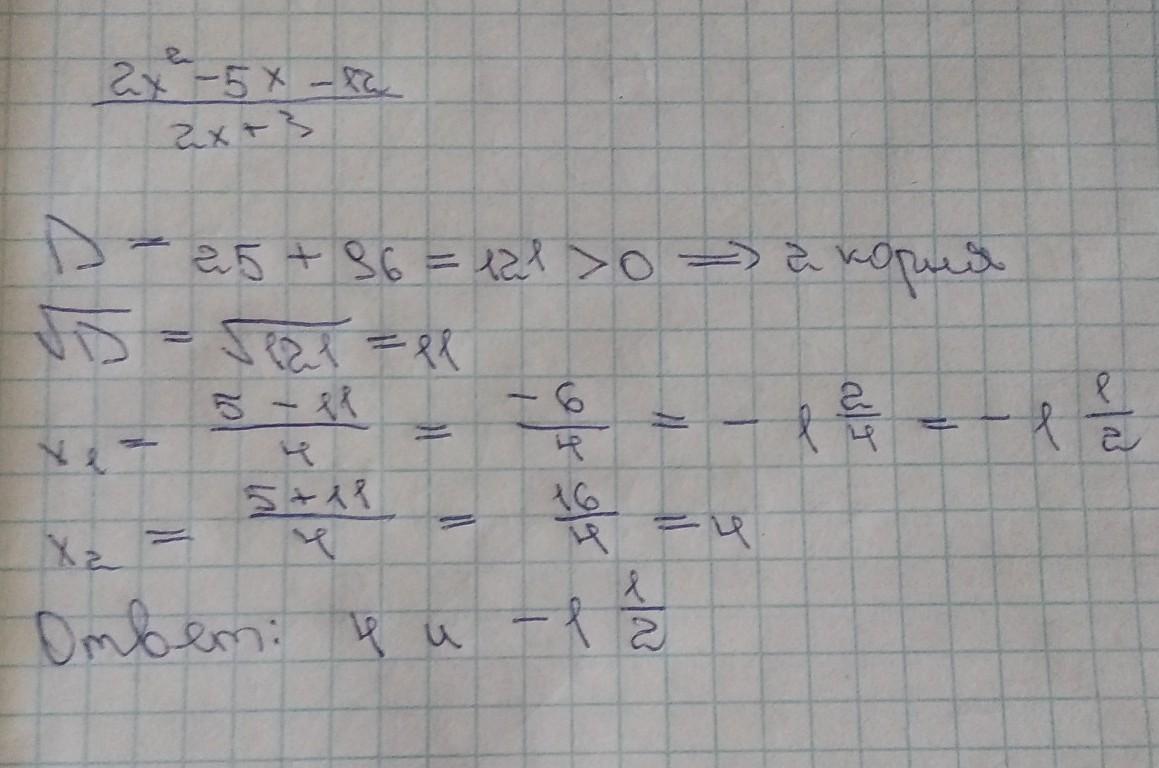 2x² - 5x - 12
2x + 3
D = 25 + 96 = 121 > 0 ⟹ 2 корня
√D = √121 = 11
x₁ = (5 - 11)/4 = -6/4 = -1 2/4 = -1 1/2
x₂ = (5 + 11)/4 = 16/4 = 4
Ответ: 4 и -1 1/2